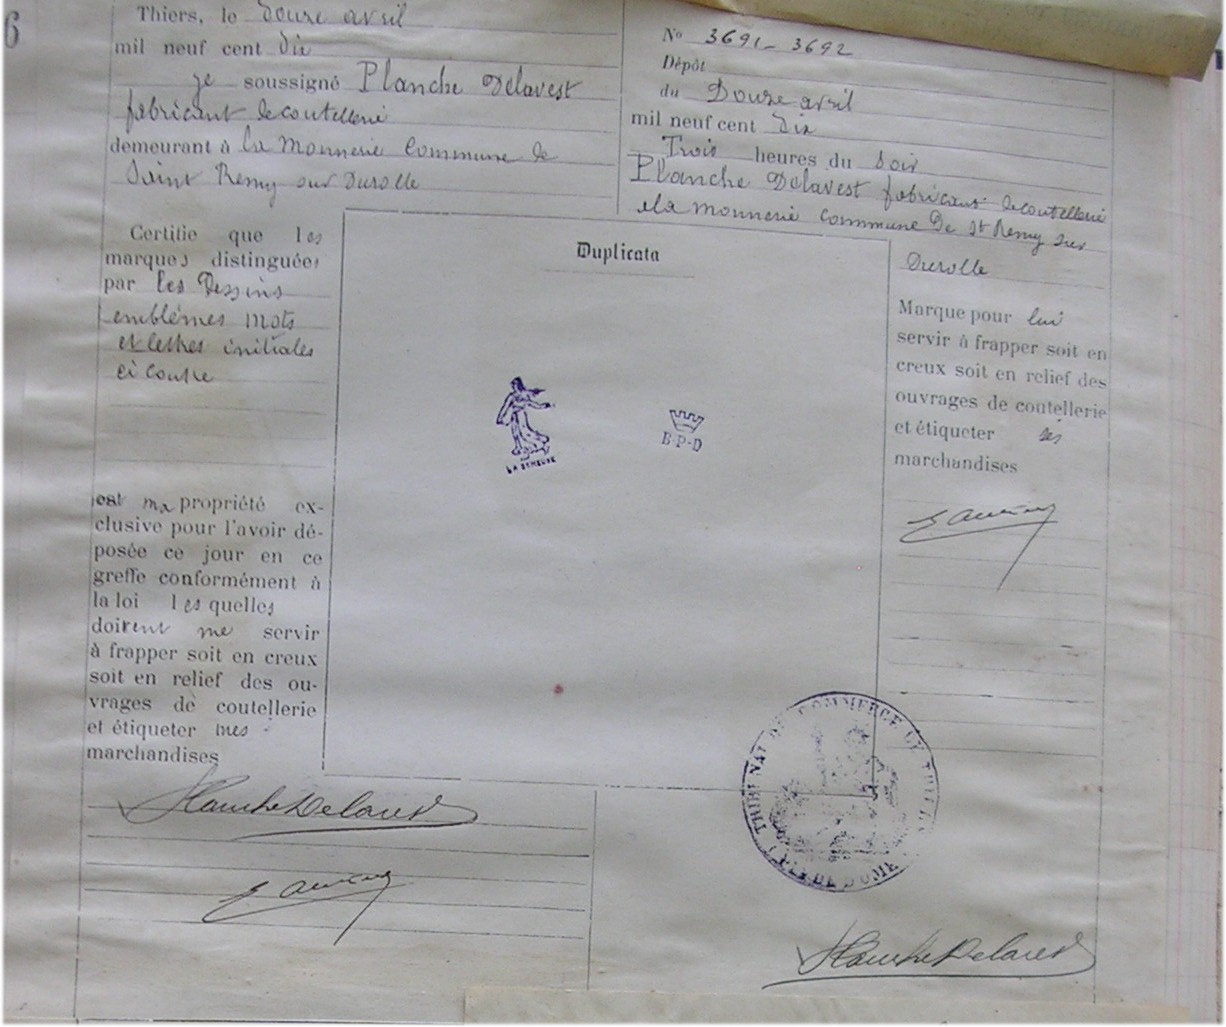 6
Thiers, le douze avril
mil neuf cent dix
je soussigné Planche Delavest
fabricant de coutellerie
demeurant à La Monnerie Commune de
Saint Remy sur Durolle
Certifie que les
marques distinguées
par les Dessins
emblémes mots
et lettres initiales
ci contre
est ma propriété ex-
clusive pour l'avoir dé-
posée ce jour en ce
greffe conformément à
la loi lesquelles
doivent me servir
à frapper soit en creux
soit en relief des ou-
vrages de coutellerie
et étiqueter mes
marchandises
Planche Delavest
Nº 3691-3692
Dépôt
du Douze avril
mil neuf cent dix
Trois heures du soir
Planche Delavest fabricant de coutellerie
à la Monnerie Commune De St Remy sur
Durolle
Duplicata
LA SEMEUSE
B-P-D
Marque pour lui
servir à frapper soit en
creux soit en relief des
ouvrages de coutellerie
et étiqueter ses
marchandises
TRIBUNAL DE COMMERCE DE THIERS
PUY DE DOME
Planche Delavest